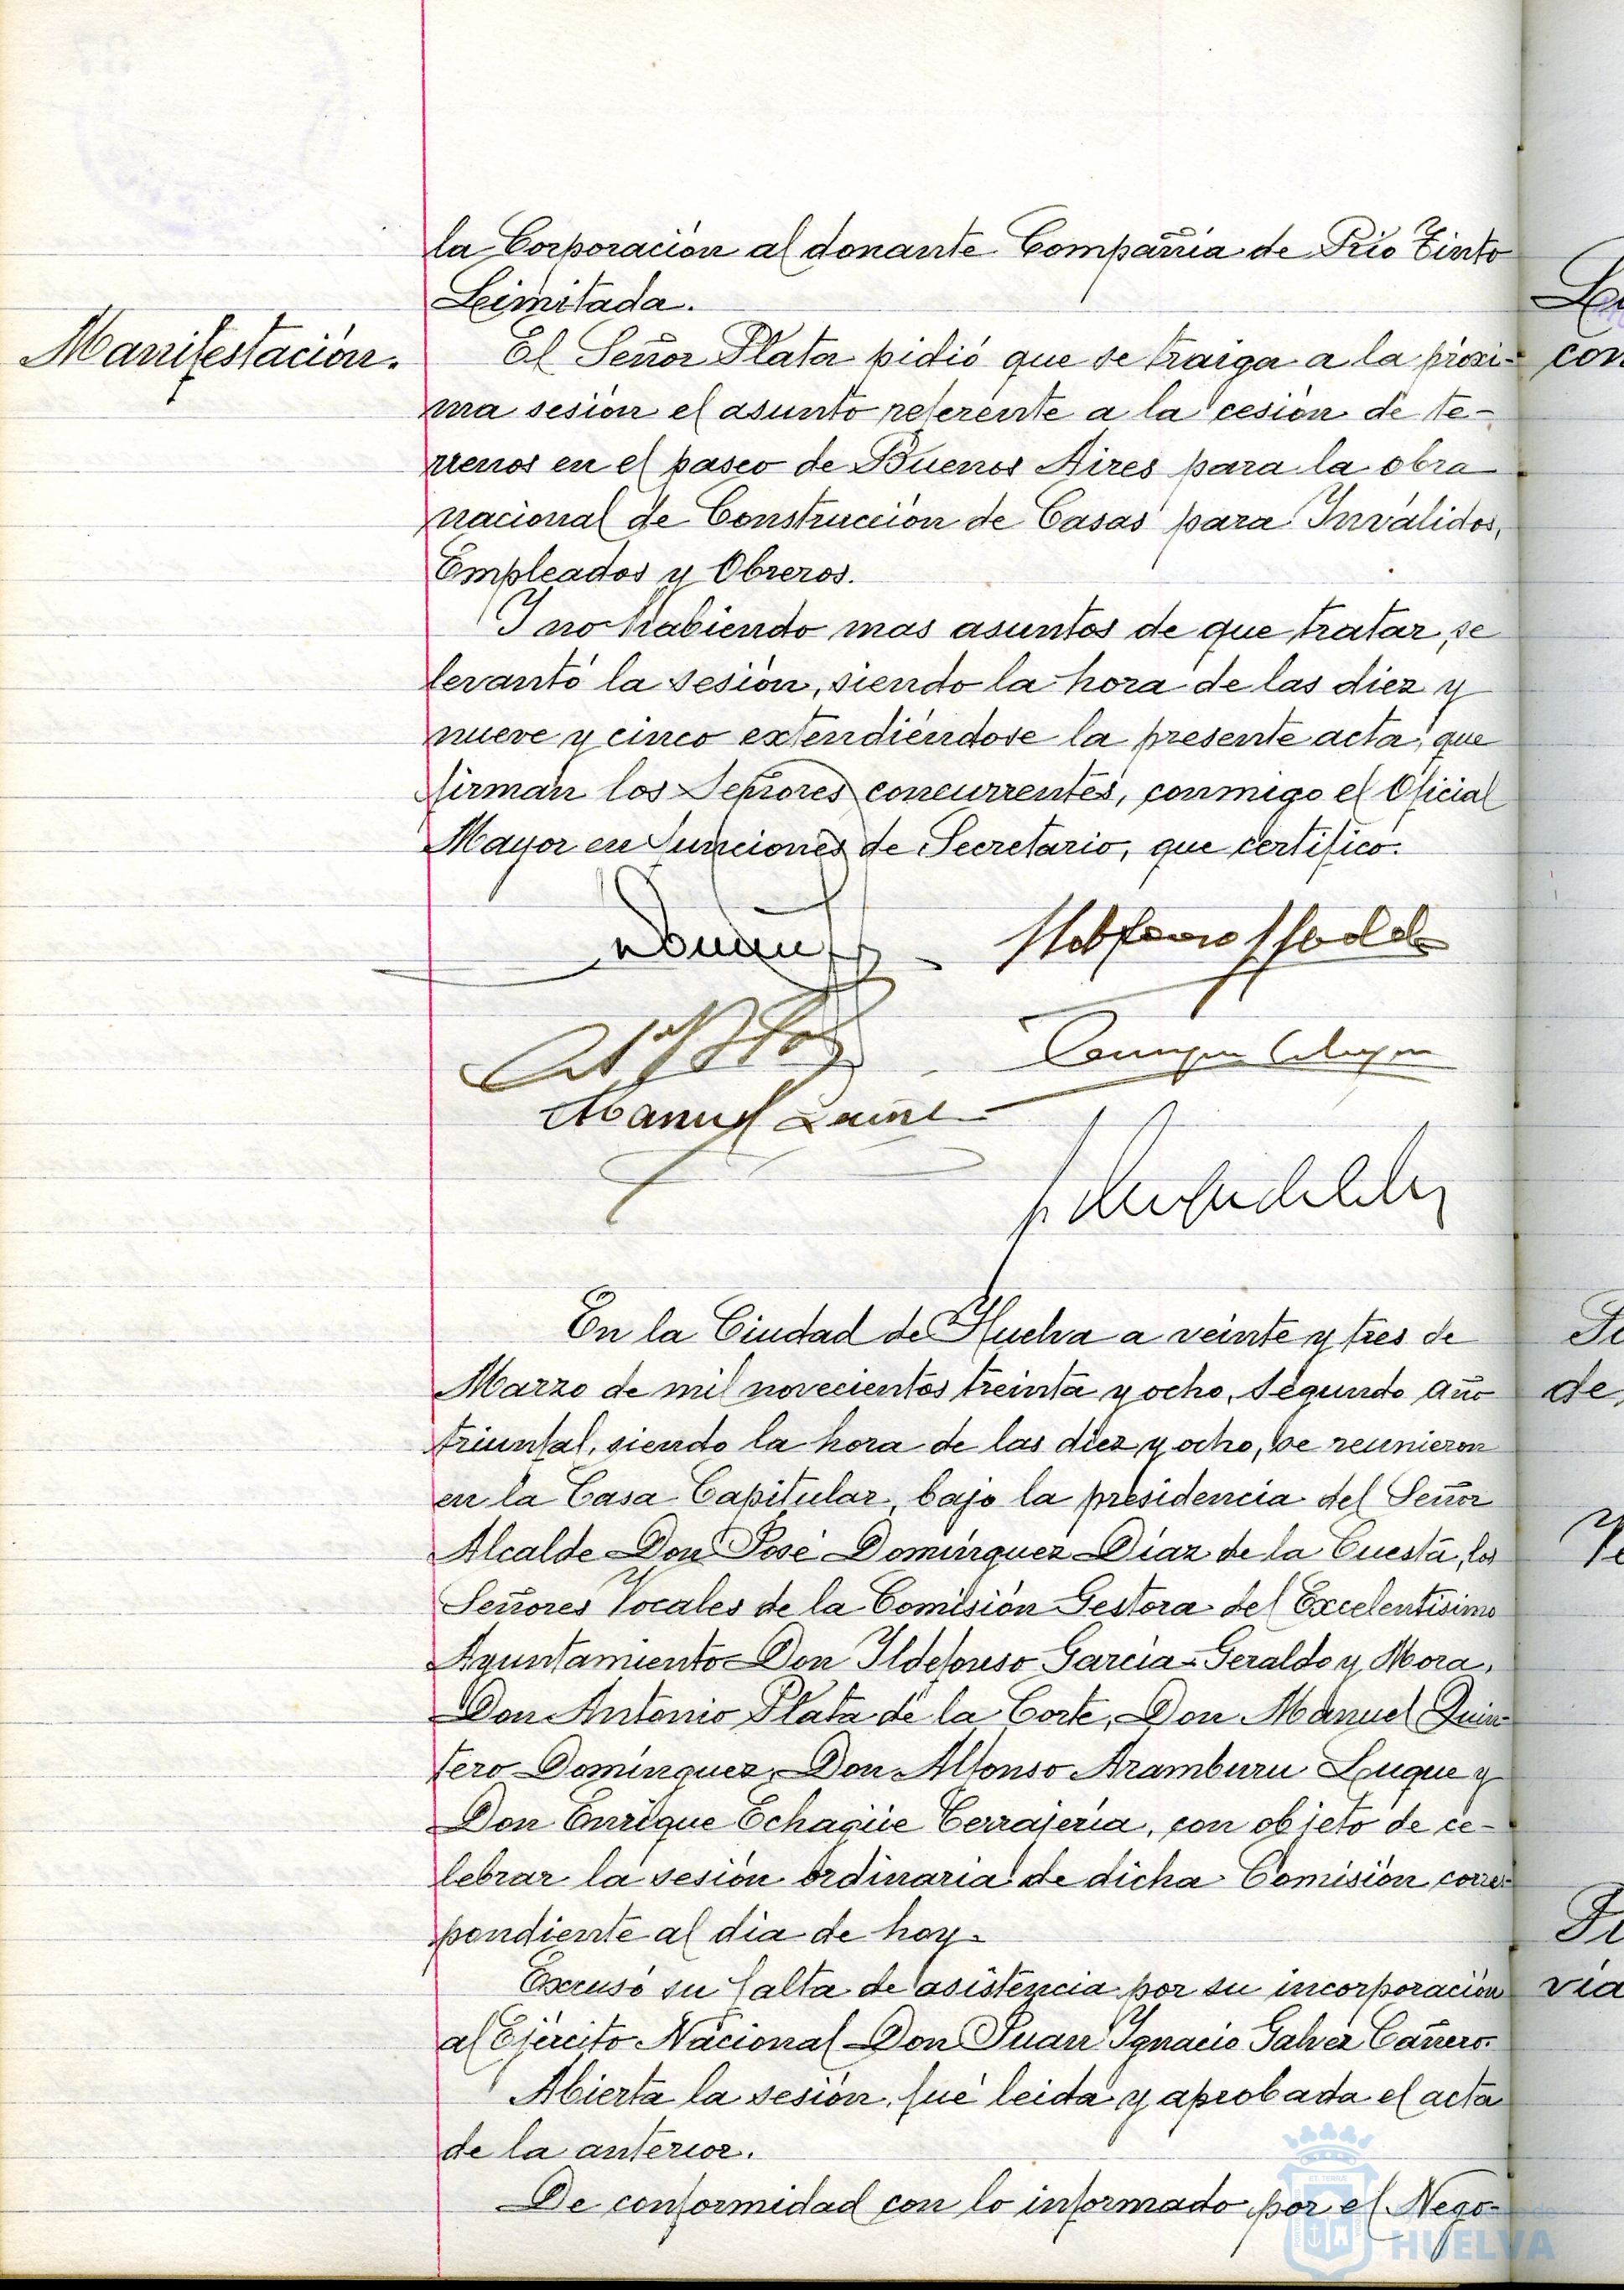 la Corporación al donante Compañia de Rio Tinto
Limitada.
Manifestación.
El Señor Plata pidió que se traiga a la proxi-
ma sesión el asunto referente a la cesión de te-
rrenos en el paseo de Buenos Aires para la obra
nacional de Construcción de Casas para Inválidos,
Empleados y Obreros.
Y no habiendo mas asuntos de que tratar, se
levantó la sesión, siendo la hora de las diez y
nueve y cinco extendiéndose la presente acta, que
firman los Señores concurrentes, conmigo el Oficial
Mayor en funciones de Secretario, que certifico.
Manuel
En la Ciudad de Huelva a veinte y tres de
Marzo de mil novecientos treinta y ocho, segundo año
triunfal, siendo la hora de las diez y ocho, se reunieron
en la Casa Capitular, bajo la presidencia del Señor
Alcalde Don José Domínguez Díaz de la Cuesta, los
Señores Vocales de la Comisión Gestora del Excelentísimo
Ayuntamiento Don Ildefonso García-Geraldo y Mora,
Don Antonio Plata de la Corte, Don Manuel Quin
tero Domínguez, Don Alfonso Aramburu Luque y
Don Enrique Echagüe Cerrajería, con objeto de ce-
lebrar la sesión ordinaria de dicha Comisión corres-
pondiente al dia de hoy.
Excusó su falta de asistencia por su incorporación
al Ejército Nacional Don Juan Ignacio Galvez Cañero.
Abierta la sesión, fué leida y aprobada el acta
de la anterior.
De conformidad con lo informado por el Nego-
HUELVA